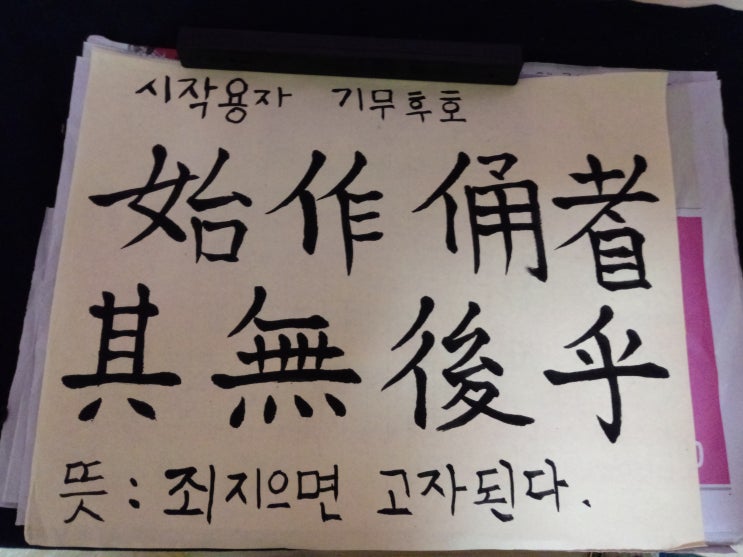 시작용자 기무후호
始作俑者
其無後乎
뜻 : 죄지으면 고자된다.